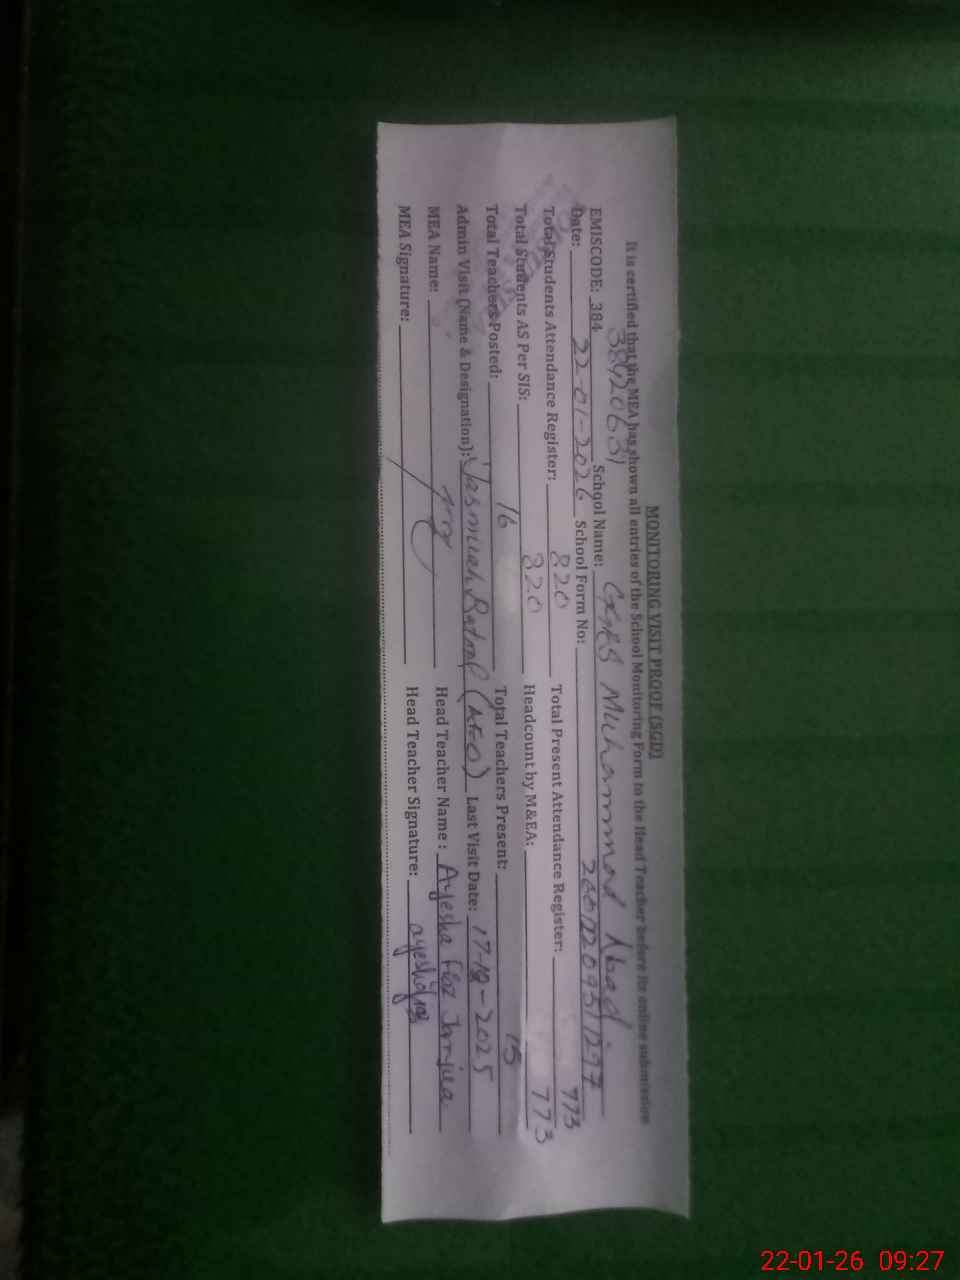 MONITORING VISIT PROOF (SGD)
It is certified that the MEA has shown all entries of the School Monitoring Form to the Head Teacher before its online submission
EMISCODE: 384 38420631 School Name: GGHS Muhammad Abad
Date: 22-01-2026 School Form No:
Total Students Attendance Register: 820 Total Present Attendance Register: 773
Total Students AS Per SIS: 820 Headcount by M&EA: 773
Total Teachers Posted: 16 Total Teachers Present: 15
Admin Visit (Name & Designation): Yasmeen Batool (AEO) Last Visit Date: 17-12-2025
MEA Name: Head Teacher Name : Ayesha
MEA Signature: Head Teacher Signature:
22-01-26 09:27